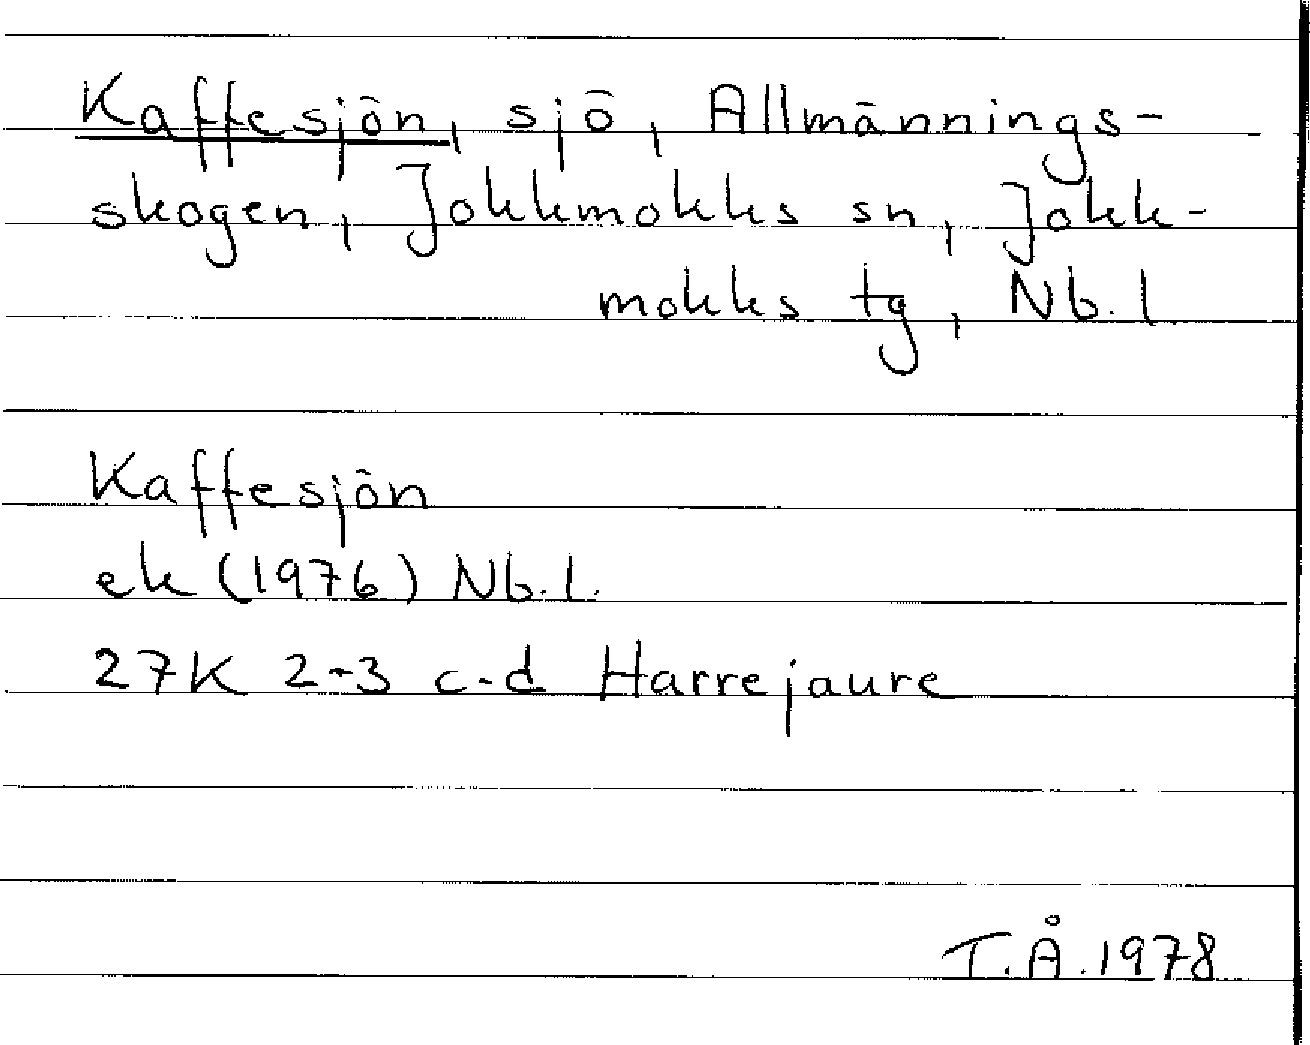 Kaffesjön, sjö, Allmännings-
skogen, Jokkmokks sn, Jokk-
mokks tg, Nb.l.
Kaffesjön
ek (1976) Nb.l.
27K 2-3 c-d Harrejaure
T.Å.1978